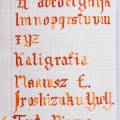 A abcdefghijk
lmnopqrstuvw
xyz
Kaligrafia
Mariusz E.
Iroshizuku Yu-Y.